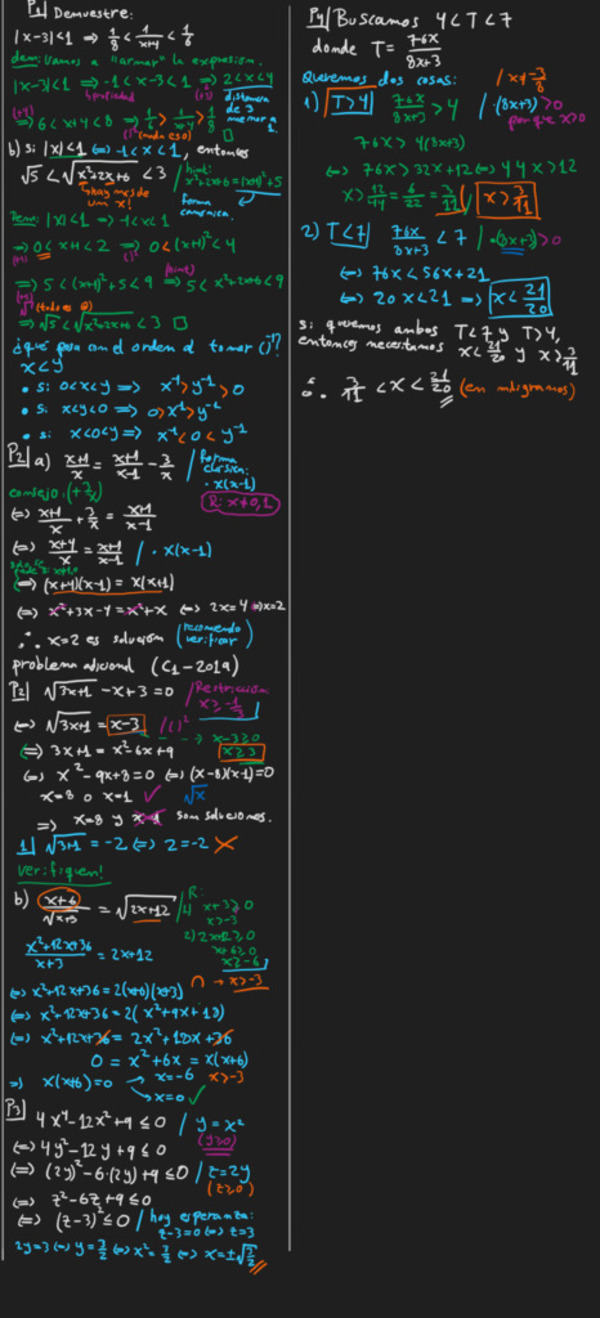 P1| Demuestre:
|x-3|<1 ⇒ 1/8 < 1/(x+4) < 1/6
dem: Vamos a "armar" la expresión.
|x-3|<1 ⇒ -1<x-3<1 ⇒ 2<x<4
propiedad (+3) distancia de 3 menor a 1.
(+4) ⇒ 6<x+4<8 ⇒ 1/6 > 1/(x+4) > 1/8 □
b) si |x|<1 (⇔ -1<x<1), entonces
√5 < √(x²+2x+6) < 3 / hint: x²+2x+6=(x+1)²+5
hay mas de un x! forma canonica.
Dem: |x|<1 ⇒ -1<x<1
⇒ 0<x+1<2 ⇒ 0<(x+1)²<4
(+1) ()²
⇒ 5<(x+1)²+5<9 ⇒ 5<x²+2x+6<9
(hint)
√ (todo es ⊕)
⇒ √5 < √(x²+2x+6) < 3 □
¿qué pasa con el orden al tomar ()⁻¹?
x<y
• si 0<x<y ⇒ x⁻¹>y⁻¹>0
• si x<y<0 ⇒ 0>x⁻¹>y⁻¹
• si x<0<y ⇒ x⁻¹<0<y⁻¹
P2| a) (x+1)/x = (x+1)/(x-1) - 3/x / forma clasica: · x(x-1)
consejo: (+3/x) R: x≠0,1
⇔ (x+1)/x + 3/x = (x+1)/(x-1)
⇔ (x+4)/x = (x+1)/(x-1) / · x(x-1)
⇔ (x+4)(x-1) = x(x+1)
⇔ x²+3x-4 = x²+x ⇔ 2x=4 ⇔ x=2
∴ x=2 es solución (recomiendo verificar)
problema adicional (C1-2019)
P2| √(3x+1) -x+3=0 / Restricción: x≥-1/3
⇔ √(3x+1) = x-3 / ()²
--→ x-3≥0
⇔ 3x+1 = x²-6x+9 x≥3
⇔ x²-9x+8=0 ⇔ (x-8)(x-1)=0
x=8 o x=1 ✓ √x
⇒ x=8 y x=1 son soluciones.
1| √(3+1) = -2 ⇔ 2=-2 ✗
verifiquen!
b) (x+6)/√(x+3) = √(2x+12) / R:
1) x+3≥0
x>-3
2) 2x+12≥0
x+6≥0
x≥-6
(x²+12x+36)/(x+3) = 2x+12
∩ → x>-3
⇔ x²+12x+36=2(x+6)(x+3)
⇔ x²+12x+36=2(x²+9x+18)
⇔ x²+12x+36= 2x²+18x+36
0 = x²+6x = x(x+6)
⇒ x(x+6)=0 → x=-6 x>-3
→ x=0 ✓
P3| 4x⁴-12x²+9 ≤0 / y=x²
⇔ 4y²-12y+9≤0 (y≥0)
⇔ (2y)²-6·(2y)+9≤0 / z=2y
(z≥0)
⇔ z²-6z+9≤0
⇔ (z-3)²≤0 / hay esperanza:
z-3=0 ⇔ z=3
2y=3 ⇔ y=3/2 ⇔ x²=3/2 ⇔ x=±√(3/2)
P4| Buscamos 4<T<7
donde T= 76x/(8x+3)
Queremos dos cosas: / x≠-3/8
1) T>4| 76x/(8x+3) >4 / ·(8x+3)>0
porque x>0
76x > 4(8x+3)
⇔ 76x>32x+12 ⇔ 44x>12
x> 12/44 = 6/22 = 3/11 x>3/11
2) T<7| 76x/(8x+3) <7 / ·(8x+3)>0
⇔ 76x<56x+21
⇔ 20x<21 ⇒ x<21/20
si queremos ambos T<7 y T>4,
entonces necesitamos x<21/20 y x>3/11
∴ 3/11 <x< 21/20 (en miligramos)